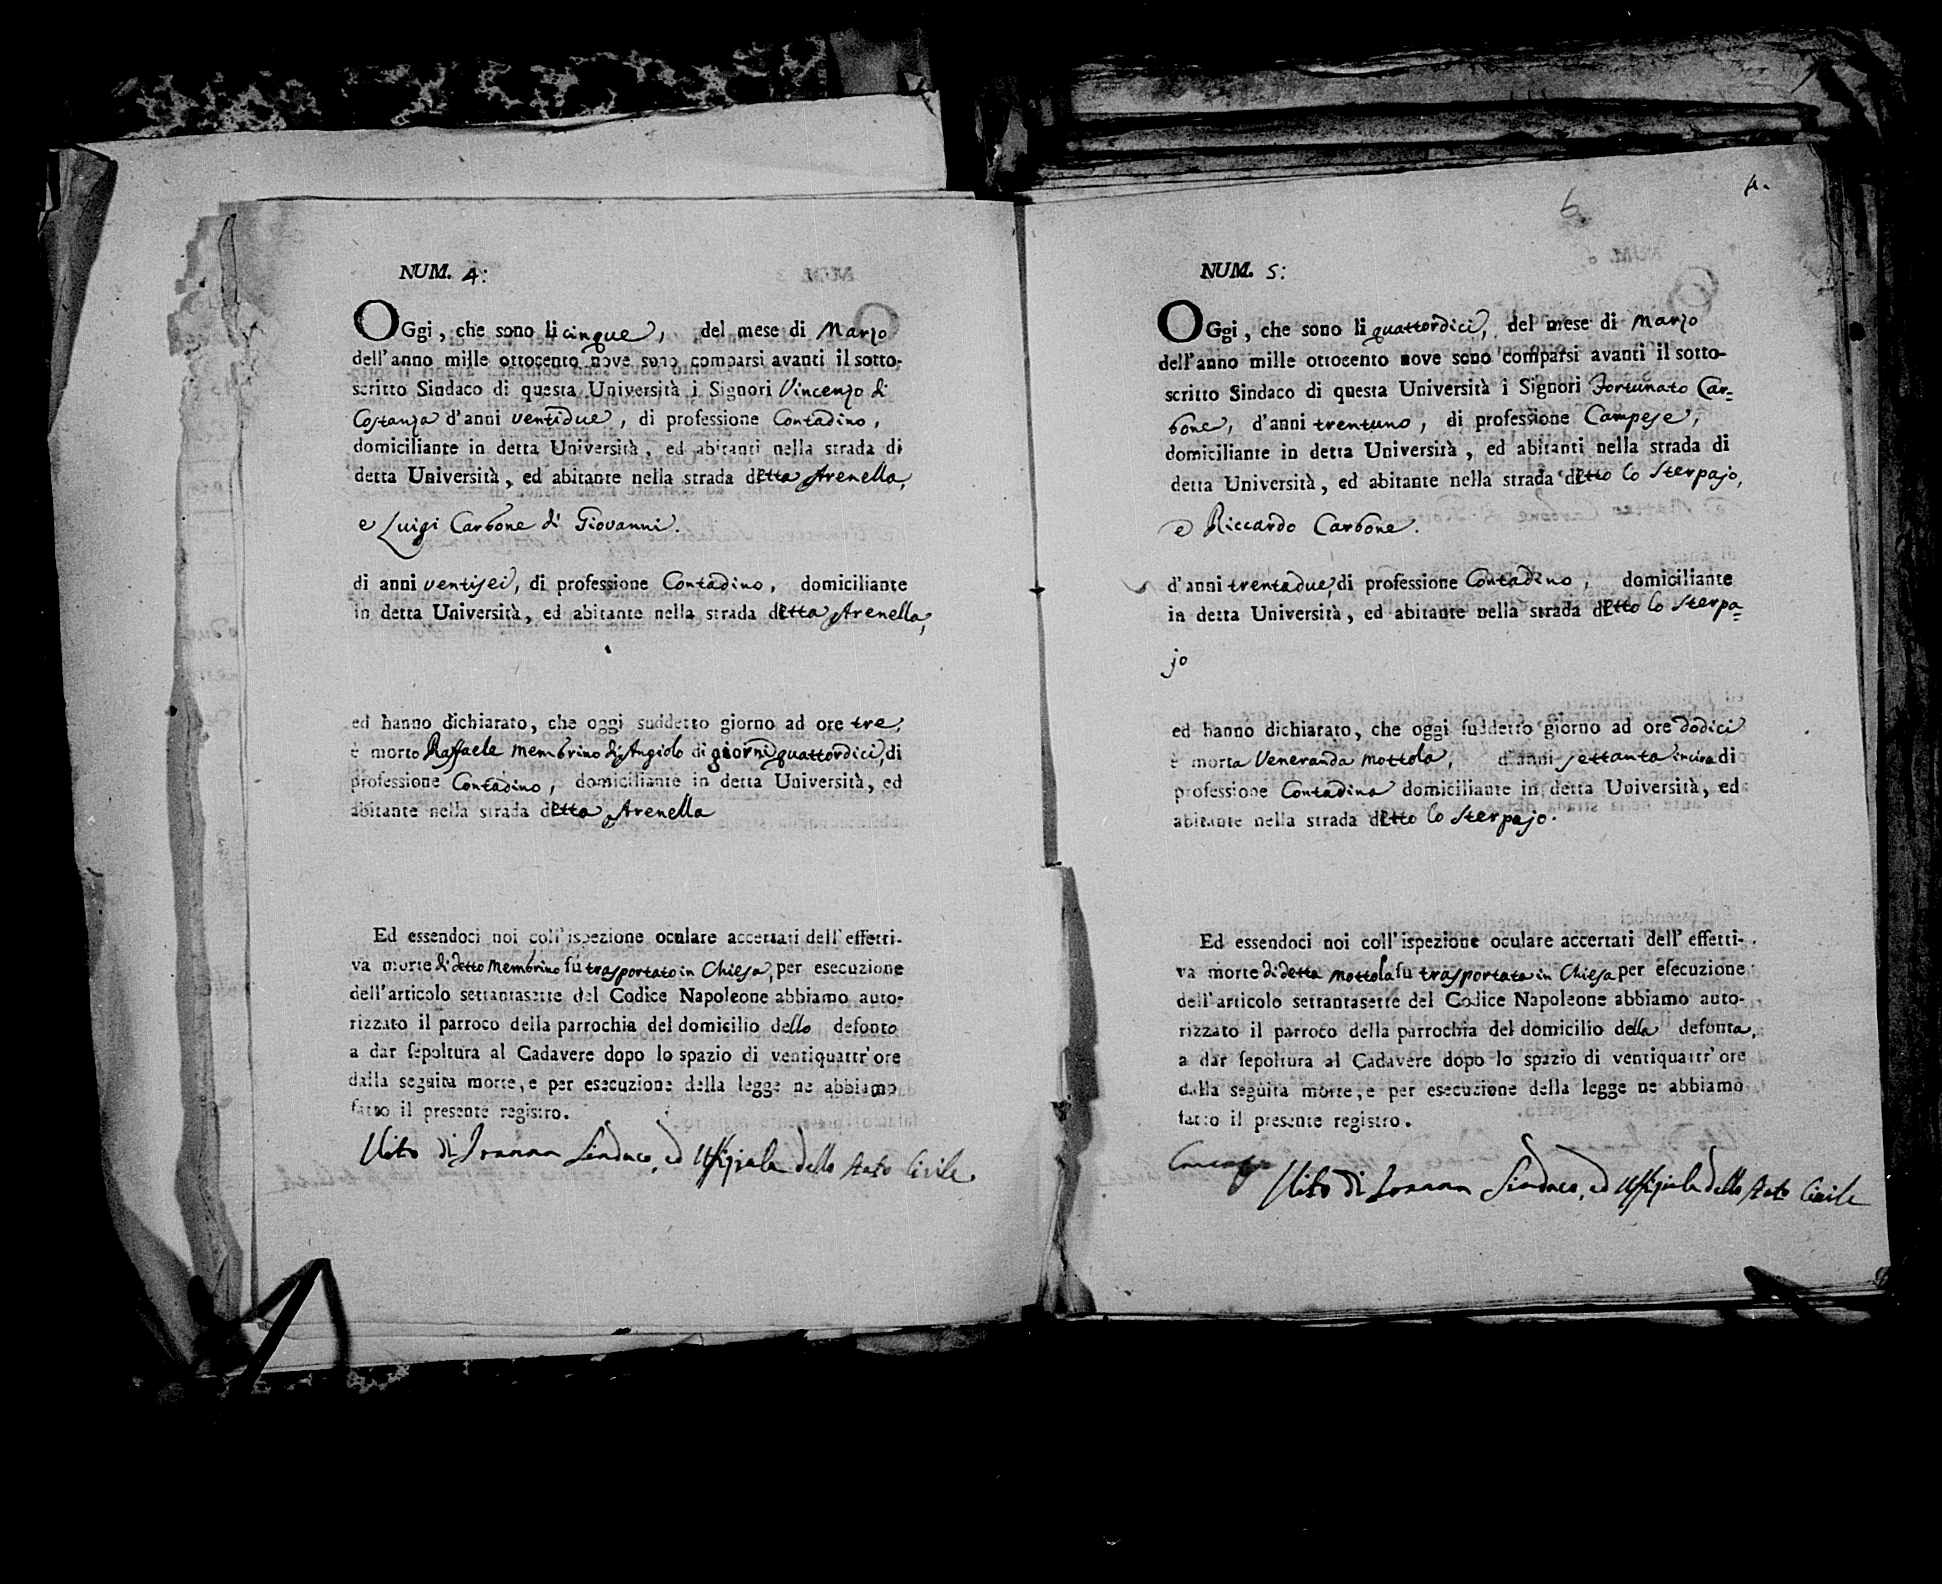 NUM. 4:
OGgi, che sono li cinque, del mese di Marzo
dell'anno mille ottocento nove sono comparsi avanti il sotto-
scritto Sindaco di questa Università i Signori Vincenzo di
Costanza d'anni ventidue, di professione Contadino,
domiciliante in detta Università, ed abitanti nella strada di
detta Università, ed abitante nella strada detta Arenella,
e Luigi Carbone di Giovanni.
di anni ventisei, di professione Contadino, domiciliante
in detta Università, ed abitante nella strada detta Arenella,
ed hanno dichiarato, che oggi suddetto giorno ad ore tre,
è morto Raffaele Membrino di Angiolo di giorni quattordici, di
professione Contadino, domiciliante in detta Università, ed
abitante nella strada detta Arenella
Ed essendoci noi coll'ispezione oculare accertati dell'effetti-
va morte di detto Membrino fù trasportato in Chiesa, per esecuzione
dell'articolo settantasette del Codice Napoleone abbiamo auto-
rizzato il parroco della parrochia del domicilio dello defonto
a dar sepoltura al Cadavere dopo lo spazio di ventiquattr'ore
dalla seguita morte, e per esecuzione della legge ne abbiamo
fatto il presente registro.
Vito di Ioanna Sindaco, ed Uffiziale dello Stato Civile
6
4.
NUM. 5:
OGgi, che sono li quattordici, del mese di Marzo
dell'anno mille ottocento nove sono comparsi avanti il sotto-
scritto Sindaco di questa Università i Signori Fortunato Car=
bone, d'anni trentuno, di professione Campese,
domiciliante in detta Università, ed abitanti nella strada di
detta Università, ed abitante nella strada detto lo Sterpajo,
e Riccardo Carbone.
d'anni trentadue, di professione Contadino, domiciliante
in detta Università, ed abitante nella strada detto lo Sterpa=
jo
ed hanno dichiarato, che oggi suddetto giorno ad ore dodici
è morta Veneranda Mottola, d'anni settanta incirca di
professione Contadina domiciliante in detta Università, ed
abitante nella strada detto lo Sterpajo.
Ed essendoci noi coll'ispezione oculare accertati dell'effetti-
va morte di detta Mottola fu trasportata in Chiesa per esecuzione
dell'articolo settantasette del Codice Napoleone abbiamo auto-
rizzato il parroco della parrochia del domicilio della defonta,
a dar sepoltura al Cadavere dopo lo spazio di ventiquattr'ore
dalla seguita morte, e per esecuzione della legge ne abbiamo
fatto il presente registro.
Vito di Ioanna Sindaco, ed Uffiziale dello Stato Civile